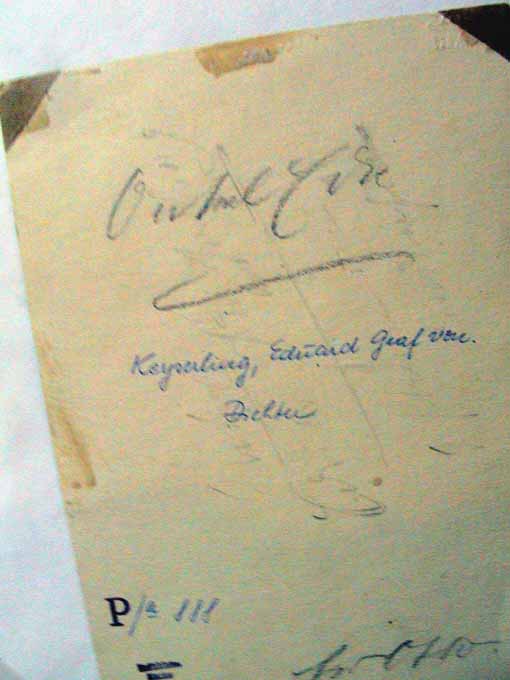 Onkel Ede
Keyserling, Eduard Graf von.
Dichter
P/a 111